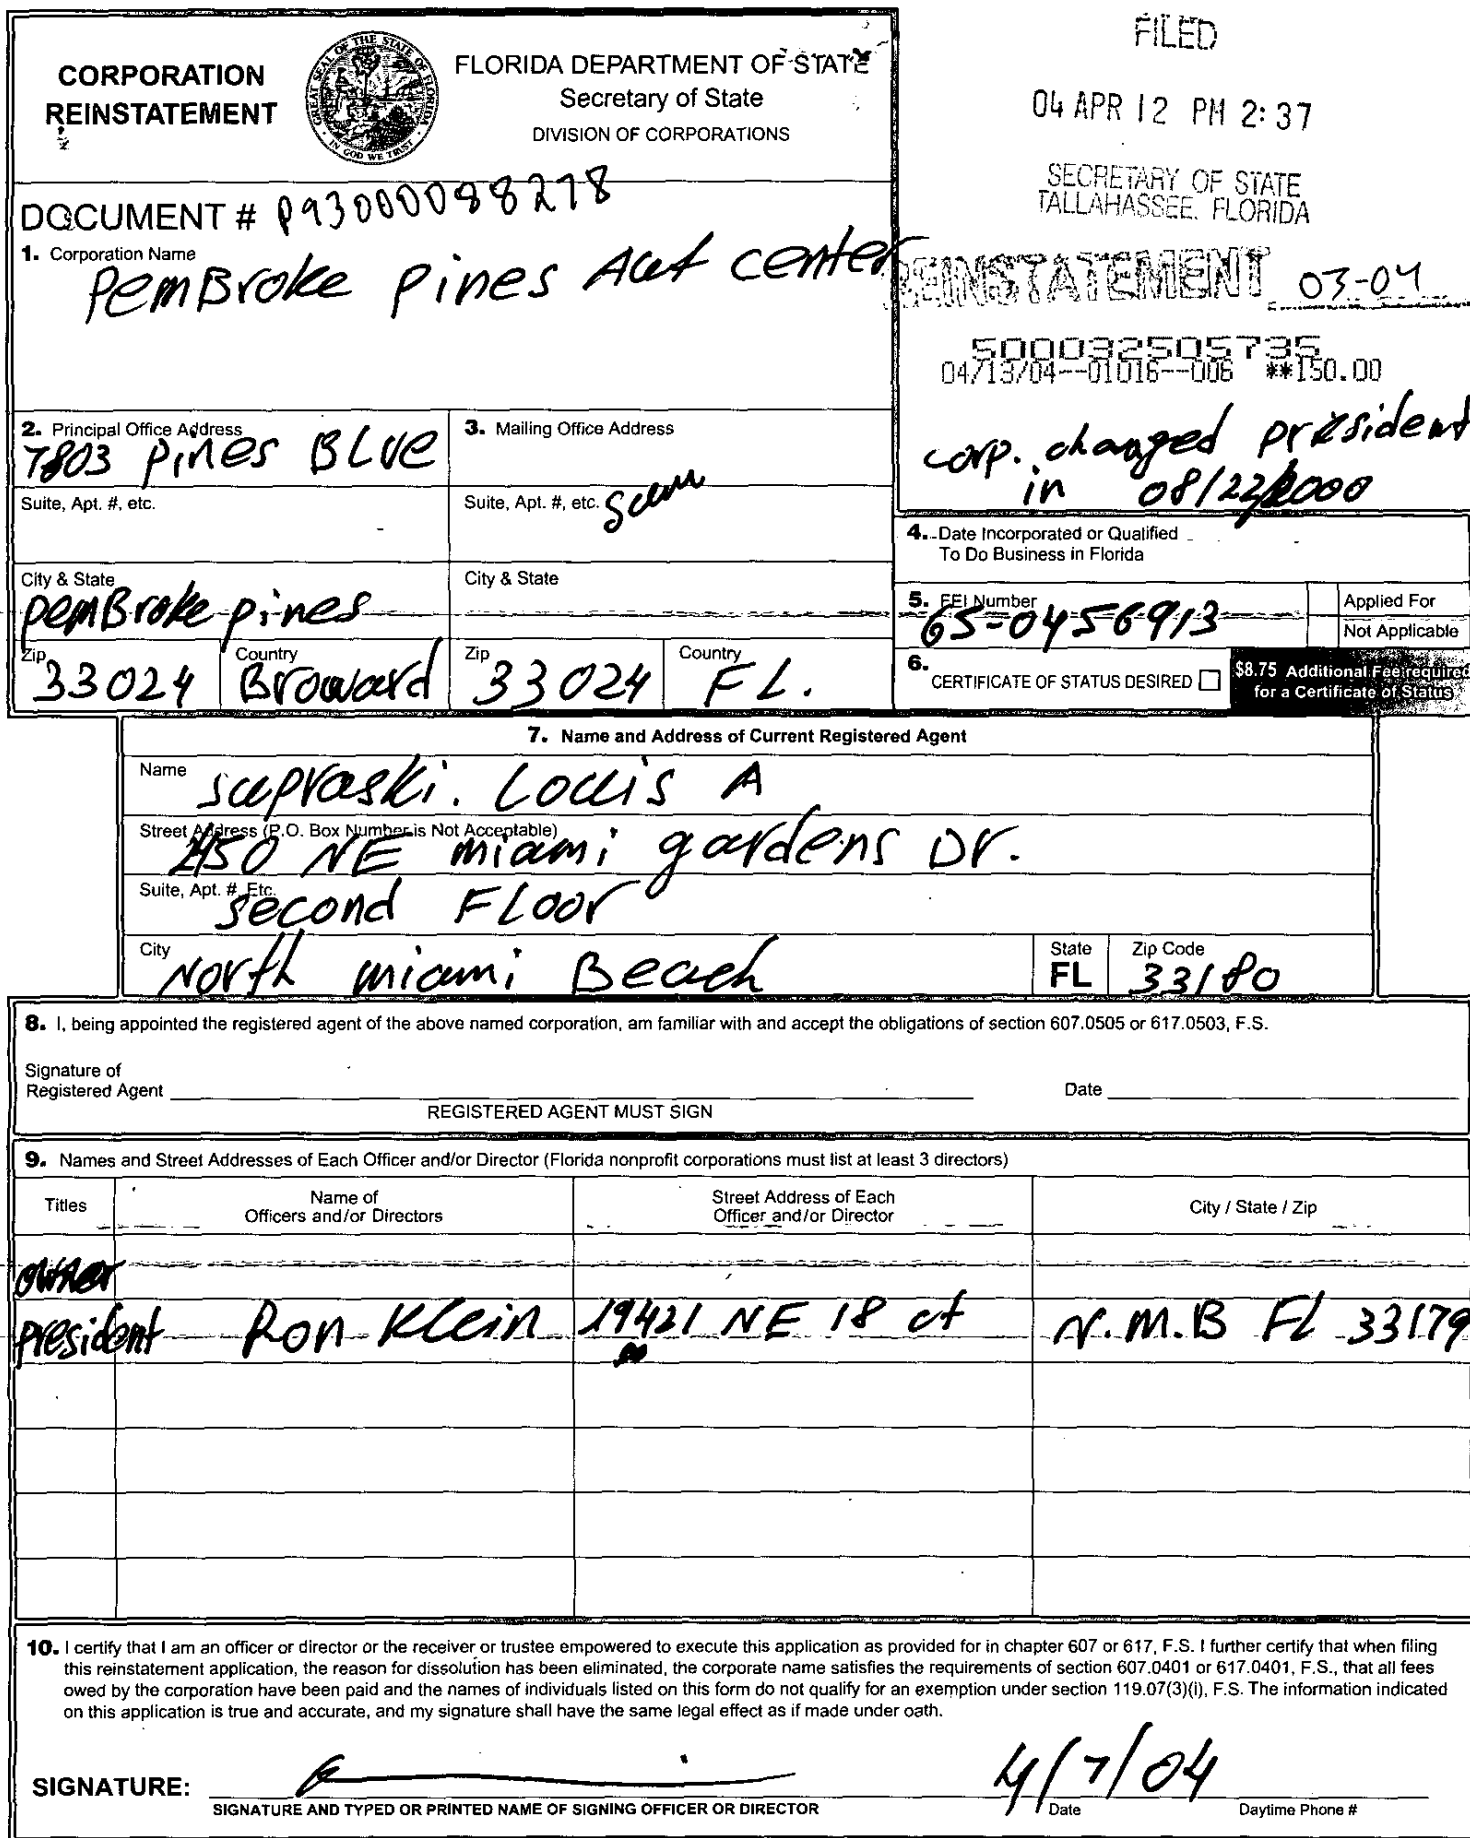 CORPORATION
REINSTATEMENT
GREAT SEAL OF THE STATE OF FLORIDA
IN GOD WE TRUST
FLORIDA DEPARTMENT OF STATE
Secretary of State
DIVISION OF CORPORATIONS
FILED
04 APR 12 PM 2:37
SECRETARY OF STATE
TALLAHASSEE, FLORIDA
DOCUMENT # P93000088278
1. Corporation Name
PemBroke Pines Aut center
REINSTATEMENT 03-04
500032505735
04/13/04--01016--006 **150.00
corp. changed president
in 08/22/2000
2. Principal Office Address
7803 Pines BLVE
3. Mailing Office Address
Suite, Apt. #, etc.
Suite, Apt. #, etc.
4. Date Incorporated or Qualified
To Do Business in Florida
City & State
PemBroke pines
City & State
5. FEI Number
65-0456913
Applied For
Not Applicable
Zip
33024
Country
Broward
Zip
33024
Country
FL.
6.
CERTIFICATE OF STATUS DESIRED
$8.75 Additional Fee required
for a Certificate of Status
7. Name and Address of Current Registered Agent
Name
supraski. Louis A
Street Address (P.O. Box Number is Not Acceptable)
2450 NE miami gardens Dr.
Suite, Apt. #, Etc.
second Floor
City
North miami Beach
State
FL
Zip Code
33180
8. I, being appointed the registered agent of the above named corporation, am familiar with and accept the obligations of section 607.0505 or 617.0503, F.S.
Signature of
Registered Agent
Date
REGISTERED AGENT MUST SIGN
9. Names and Street Addresses of Each Officer and/or Director (Florida nonprofit corporations must list at least 3 directors)
Titles
Name of
Officers and/or Directors
Street Address of Each
Officer and/or Director
City / State / Zip
owner
president Ron Klein 19421 NE 18 ct N.M.B FL 33179
10. I certify that I am an officer or director or the receiver or trustee empowered to execute this application as provided for in chapter 607 or 617, F.S. I further certify that when filing
this reinstatement application, the reason for dissolution has been eliminated, the corporate name satisfies the requirements of section 607.0401 or 617.0401, F.S., that all fees
owed by the corporation have been paid and the names of individuals listed on this form do not qualify for an exemption under section 119.07(3)(i), F.S. The information indicated
on this application is true and accurate, and my signature shall have the same legal effect as if made under oath.
SIGNATURE:
4/7/04
SIGNATURE AND TYPED OR PRINTED NAME OF SIGNING OFFICER OR DIRECTOR
Date
Daytime Phone #